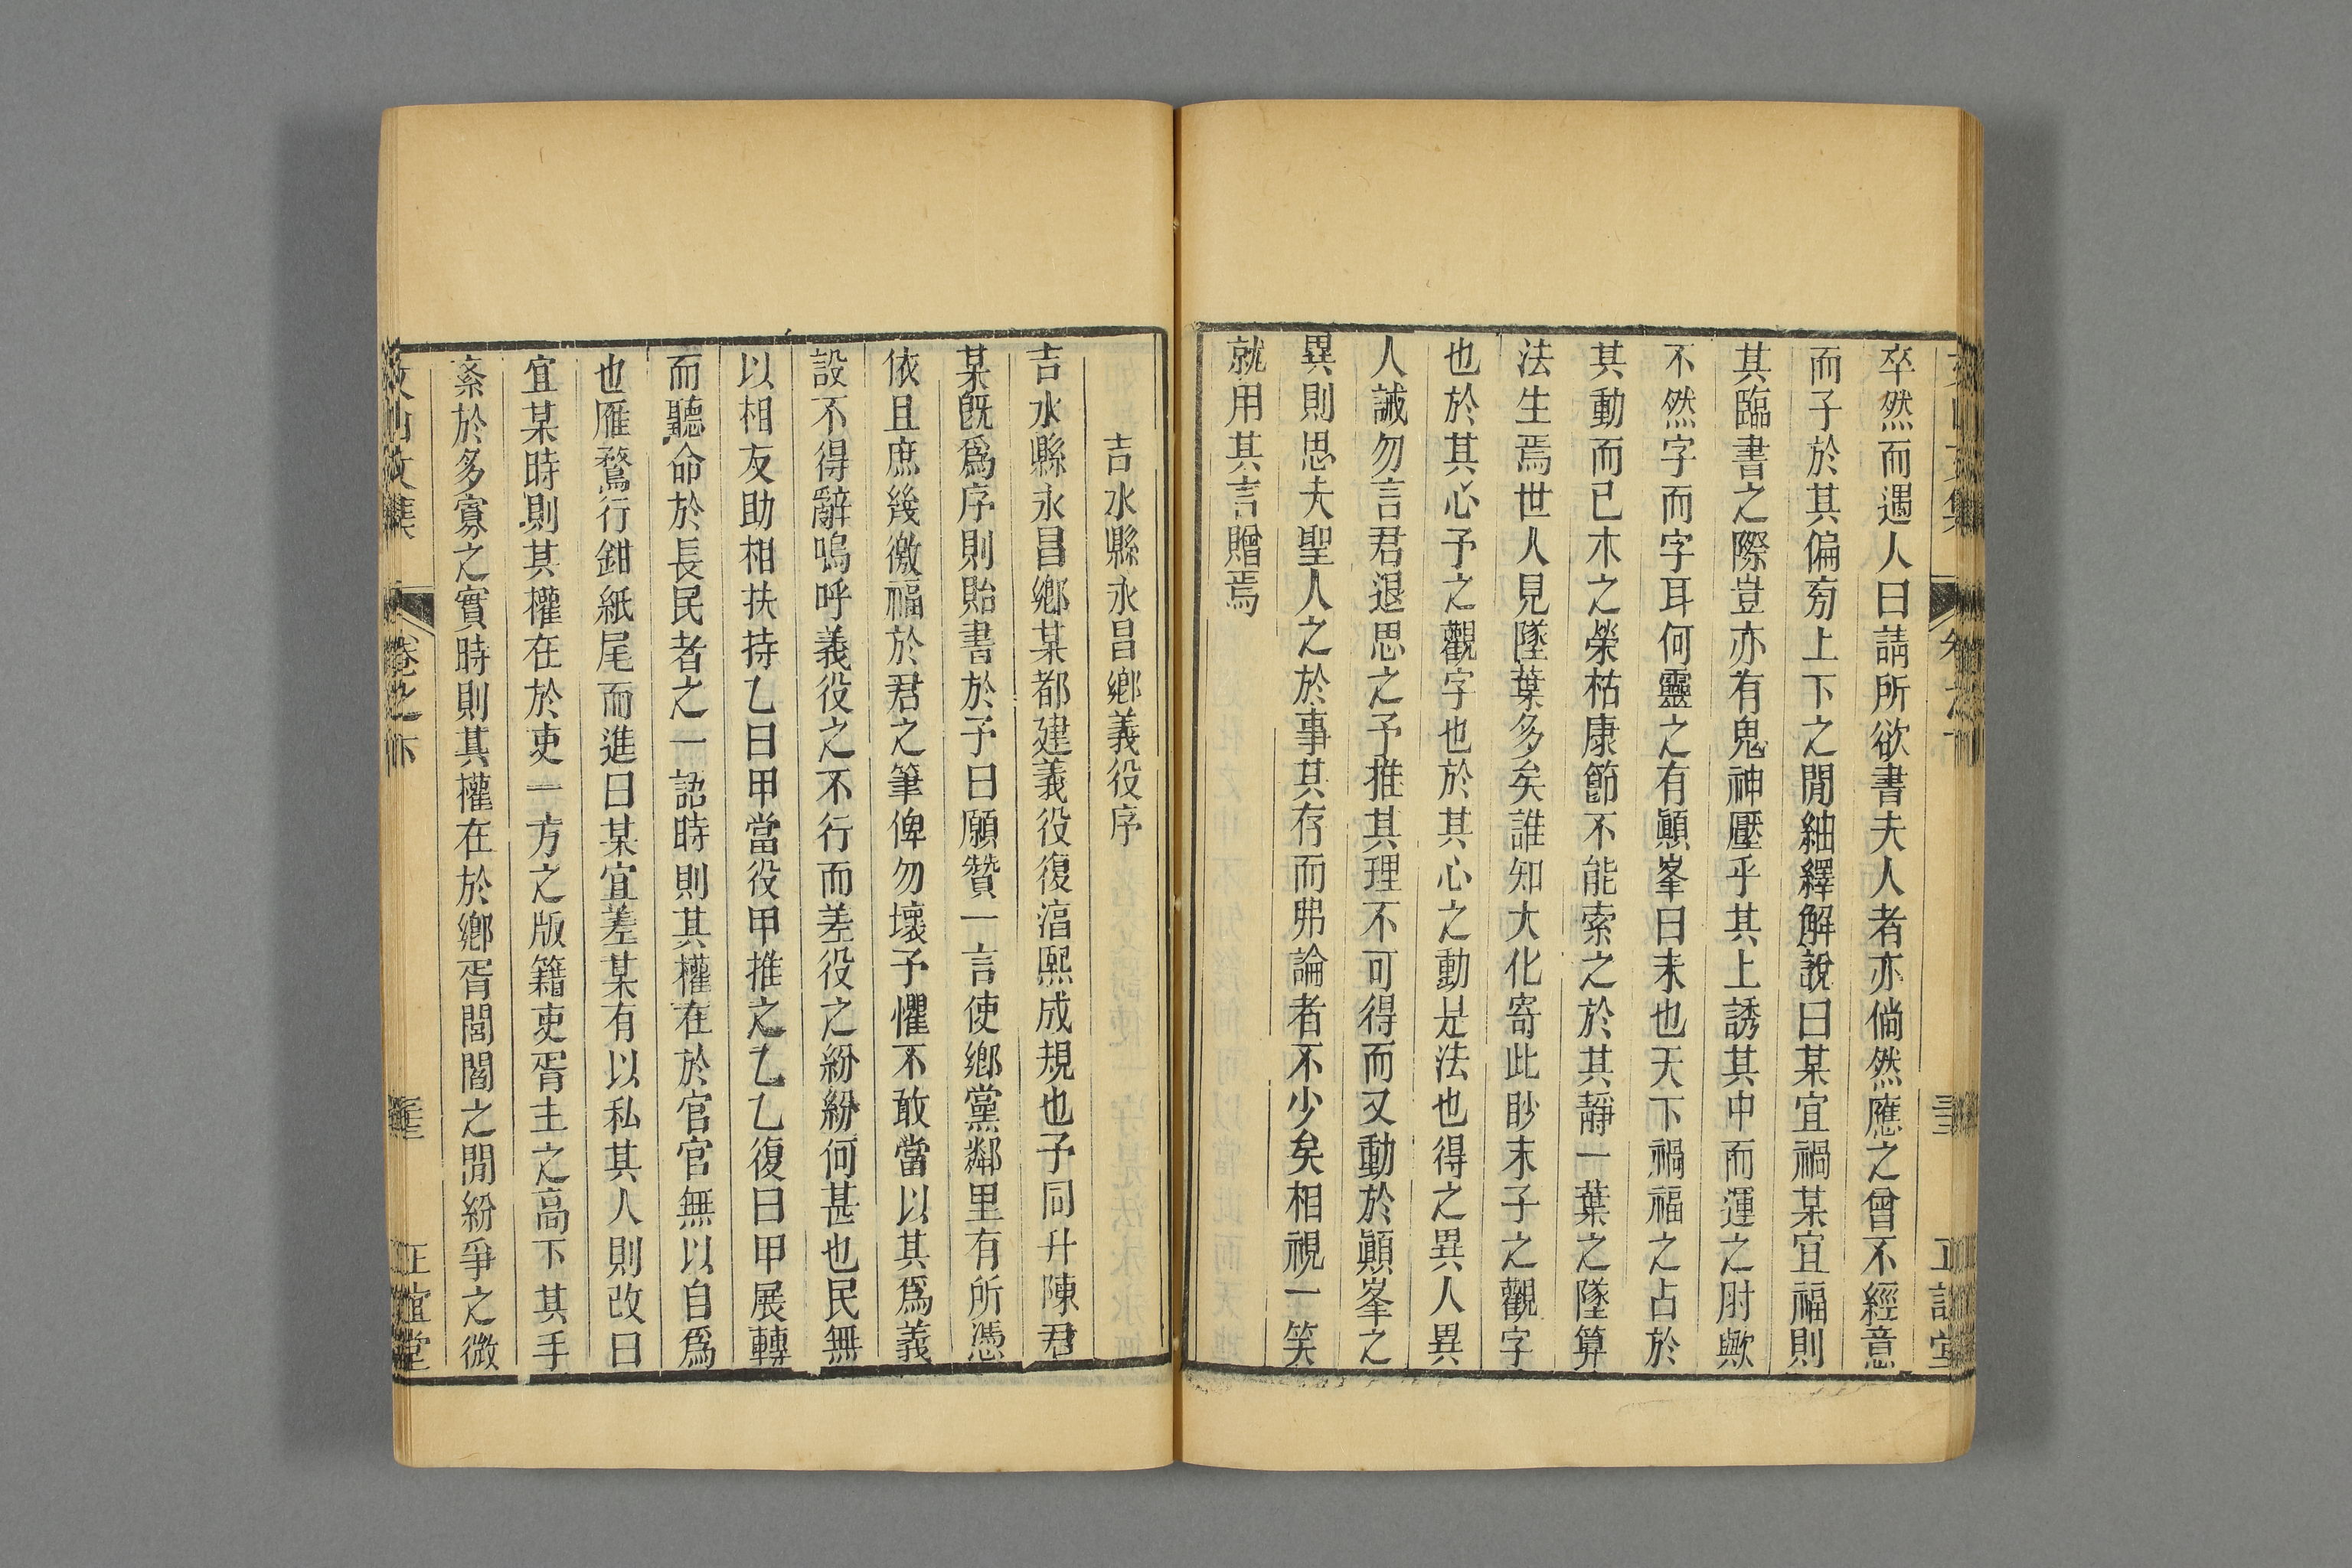 卒然而遇人曰請所欲書夫人者亦倘然應之曾不經意
而子於其偏旁上下之閒紬繹解說曰某宜禍某宜福則
其臨書之際豈亦有鬼神壓乎其上誘其中而運之肘歟
不然字而字耳何靈之有顚峯曰未也天下禍福之占於
其動而已木之榮枯康節不能索之於其靜一葉之墜算
法生焉世人見墜葉多矣誰知大化寄此眇末子之觀字
也於其心予之觀字也於其心之動是法也得之異人異
人誡勿言君退思之予推其理不可得而又動於顚峯之
異則思夫聖人之於事其存而弗論者不少矣相視一笑
就用其言贈焉
吉水縣永昌鄉義役序
吉水縣永昌鄉某都建義役復湻熙成規也予同升陳君
某旣爲序則貽書於予曰願贊一言使鄉黨鄰里有所憑
依且庶幾徼福於君之筆俾勿壞予懼不敢當以其爲義
設不得辭嗚呼義役之不行而差役之紛紛何甚也民無
以相友助相扶持乙曰甲當役甲推之乙乙復曰甲展轉
而聽命於長民者之一諾時則其權在於官官無以自爲
也雁鶩行鉗紙尾而進曰某宜差某有以私其人則改曰
宜某時則其權在於吏一方之版籍吏胥主之高下其手
紊於多寡之實時則其權在於鄉胥閭閻之閒紛爭之微
文山文集 卷之下 正誼堂